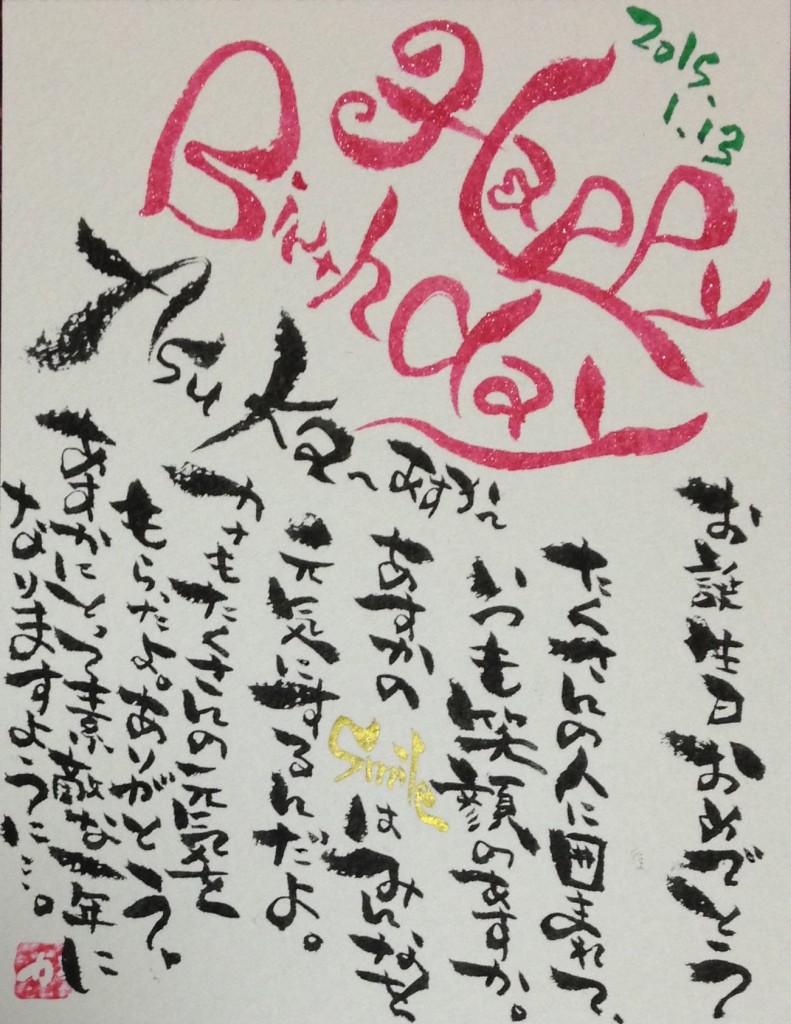 2015.
1.13
Happy
Birthday
Asuka~
あすか~
お誕生日おめでとう
たくさんの人に囲まれて、
いつも笑顔のあすか。
あすかのSmileはみんなを
元気にするんだよ。
カナもたくさんの元気を
もらったよ。ありがとう、
あすかにとって素敵な1年に
なりますように…。
カ